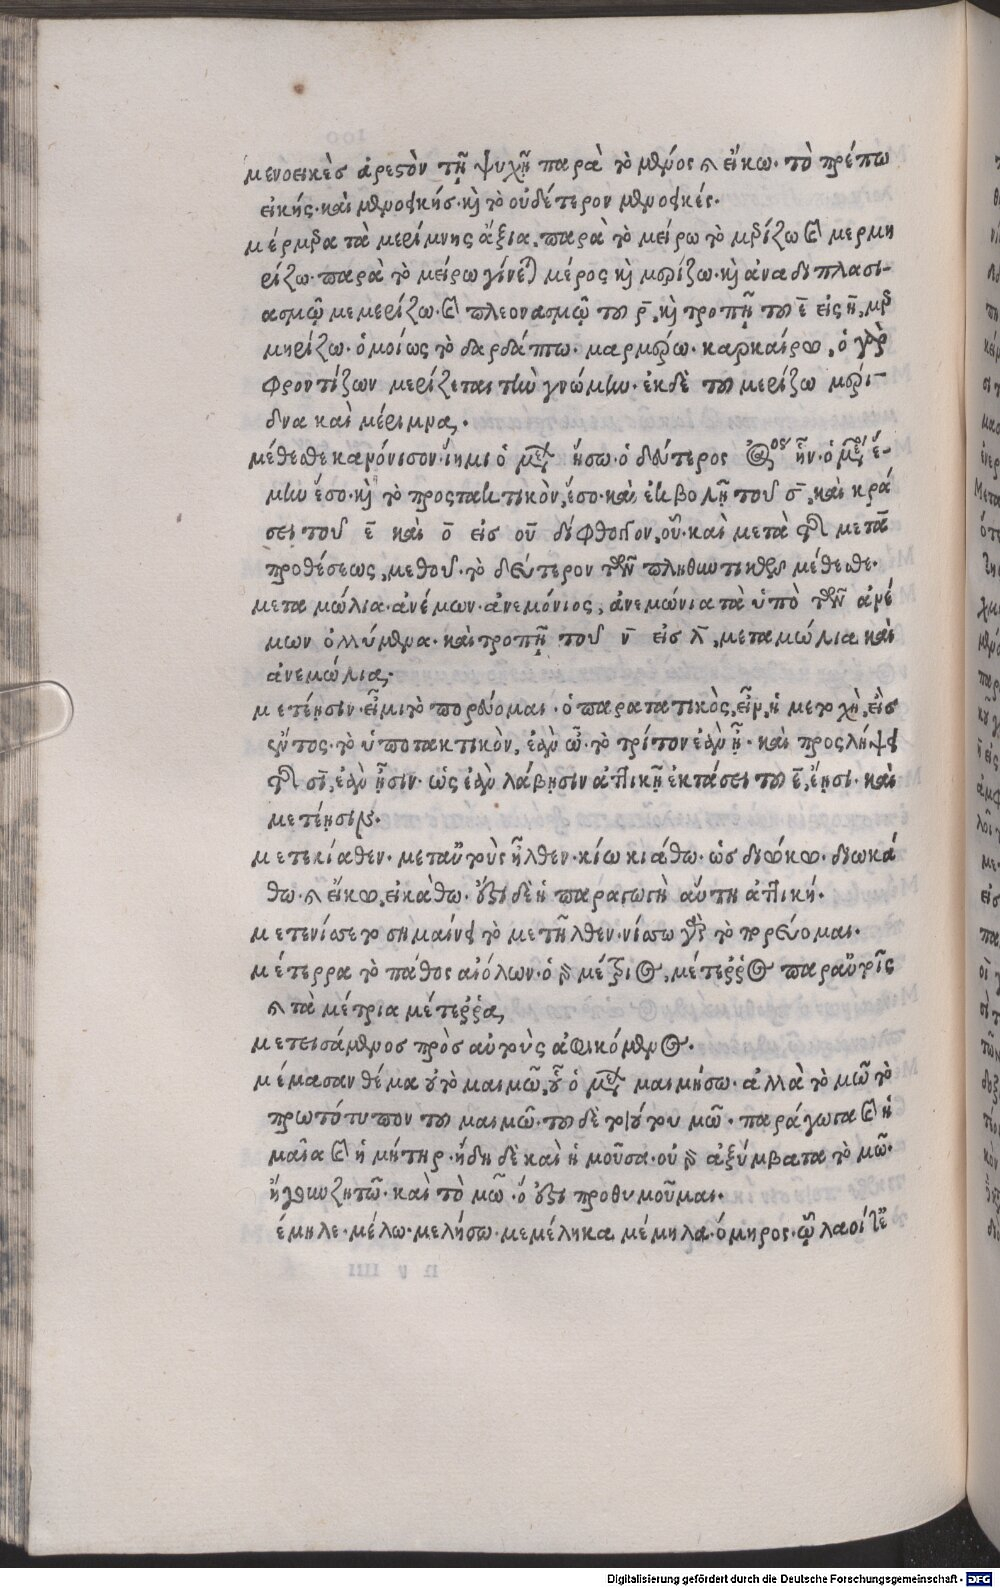 μενοεικὲσ ἀρεστὸν τῇ ψυχῇ παρὰ τὸ μένος καὶ εἴκω· τὸ πρέπω
εἰκής· καὶ μενοεικής· καὶ τὸ οὐδέτερον μενοεικές·
μέρμερα τὰ μερίμνης ἄξια, παρὰ τὸ μείρω τὸ μερίζω καὶ μερμη
ρίζω· παρὰ τὸ μείρω γίνεται μέρος καὶ μερίζω· καὶ ἀναδιπλασι-
ασμῷ μεμερίζω· καὶ πλεονασμῷ του ρ̄, καὶ τροπῇ του ε̄ εἰς η̄, μερ
μηρίζω· ὁμοίως τὸ δαρδάπτω· μαρμαίρω· καρκαίρω, ὁ γὰρ
φροντίζων μερίζεται τὴν γνώμην· ἐκ δὲ του μερίζω μερί-
δνα καὶ μέριμνα,·
μέθεσθε κανόνισον· ἵημι ὁ μέλλων ἥσω· ὁ δεύτερος ἀόριστος ἦν· ὁ μέσος ἕ-
μην ἕσο· καὶ τὸ προστακτικὸν, ἕσο· καὶ ἐκβολῇ τοῦ σ̄, καὶ κρά
σει τοῦ ε̄ καὶ ο̄ εἰσ οῦ δίφθογγον, οὗ· καὶ μετὰ τῆς μετὰ
προθέσεως, μεθοῦ· τὸ δεύτερον τῶν πληθυντικῶν μέθεσθε·
μεταμώλια· ἀνέμων· ἀνεμόνιος, ἀνεμώνια τὰ ὑπὸ τῶν ἀνέ
μων ὀλλύμενα· καὶ τροπῇ τοῦ ν̄ εἰσ λ̄, μεταμώλια καὶ
ἀνεμώλια,·
μετέησιν· εἶμι τὸ πορεύομαι· ὁ παρατατικὸς, εἶν, ἡ μετοχὴ, εἲς
ἐντος· τὸ ὑποτακτικὸν, ἐὰν ὦ· τὸ τρίτον ἐὰν ᾖ· καὶ προσλήψει
τῆς σῑ, ἐὰν ᾖσιν· ὡς ἐὰν λάβησιν ἀττικῇ ἐκτάσει του ε̄, ἕησι· καὶ
μετέησιν·
μετεκίαθεν· μετ αὐτοὺς ἦλθεν· κίω κιάθω· ὡσ διώκω· διωκά
θω· καὶ εἴκω, εἰκάθω· ἔστι δὲ ἡ παραγωγὴ αὕτη ἀττική·
μετενίσετο σημαίνει τὸ μετῆλθεν· νίσσω γὰρ τὸ πορεύομαι·
μέτερρα τὸ πάθος αἰόλων· ὁ γὰρ μέτριος, μέτερρος παρ αὐτοῖς
καὶ τὰ μέτρια μέτερρα,
μετεισάμενος πρὸσ αὐτοὺς ἀφικόμενος·
μέμασαν θέμα ἐκ τὸ μαιμῶ, οὗ ὁ μέλλων μαιμήσω· ἀλλὰ τὸ μῶ τὸ
πρωτότυπον του μαιμῶ· του δὲ τοιούτου μῶ· παράγωγα καὶ ἡ
μαῖα καὶ ἡ μήτηρ· ἤδη δὲ καὶ ἡ μοῦσα· οὐ γὰρ ἀξύμβατα τὸ μῶ·
ἤγουν ζητῶ· καὶ τὸ μῶ· ὅ ἐστι προθυμοῦμαι·
ἔμηλε· μέλω· μελήσω· μεμέληκα μέμηλα· ὅμηρος· ᾧ λαοί τε